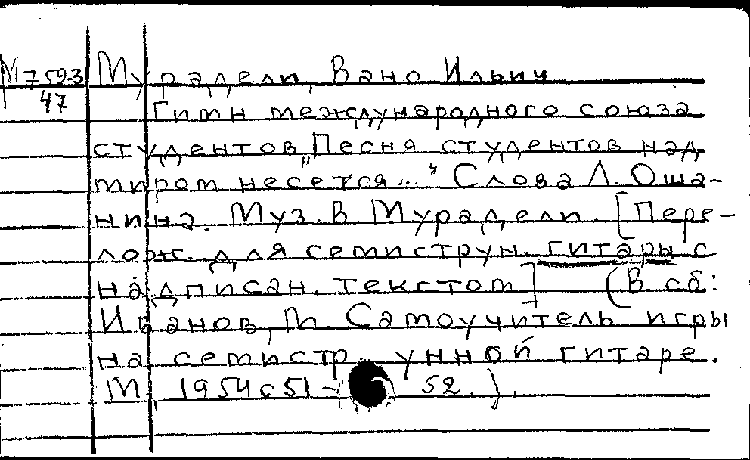 М 759.3 Мурадели, Вано Ильич
47 Гимн международного союза
студентов „Песня студентов над
миром несется..." Слова Л. Оша-
нина. Муз. В Мурадели. [Пере-
лож. для семиструн. гитары с
надписан. текстом] (В сб:
Иванов, М. Самоучитель игры
на семистр унной гитаре.
М, 1954 с 51- 52.).